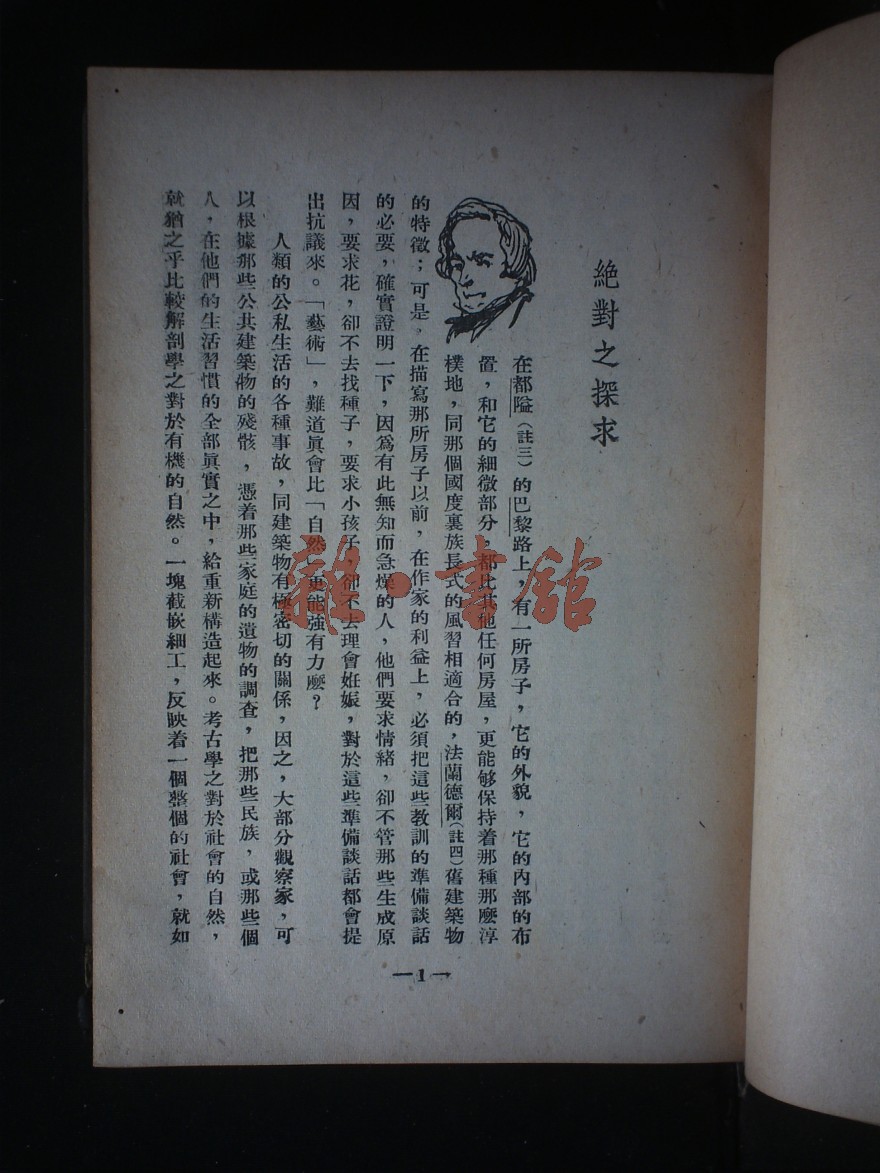 絕對之探求
在都隘(註三)的巴黎路上，有一所房子，它的外貌，它的內部的布
置，和它的細微部分，都比其他任何房屋，更能够保持着那種那麼淳
樸地，同那個國度裏族長式的風習相適合的，法蘭德爾(註四)舊建築物
的特徵；可是，在描寫那所房子以前，在作家的利益上，必須把這些教訓的準備談話
的必要，確實證明一下，因爲有此無知而急燥的人，他們要求情緒，卻不管那些生成原
因，要求花，卻不去找種子，要求小孩子，卻不去理會姙娠，對於這些準備談話都會提
出抗議來。「藝術」，難道眞會比「自然」更能強有力麼？
人類的公私生活的各種事故，同建築物有極密切的關係，因之，大部分觀察家，可
以根據那些公共建築物的殘骸，憑着那些家庭的遺物的調查，把那些民族，或那些個
人，在他們的生活習慣的全部眞實之中，給重新構造起來。考古學之對於社會的自然，
就猶之乎比較解剖學之對於有機的自然。一塊截嵌細工，反映着一個整個的社會，就如
—1—
雜·書館